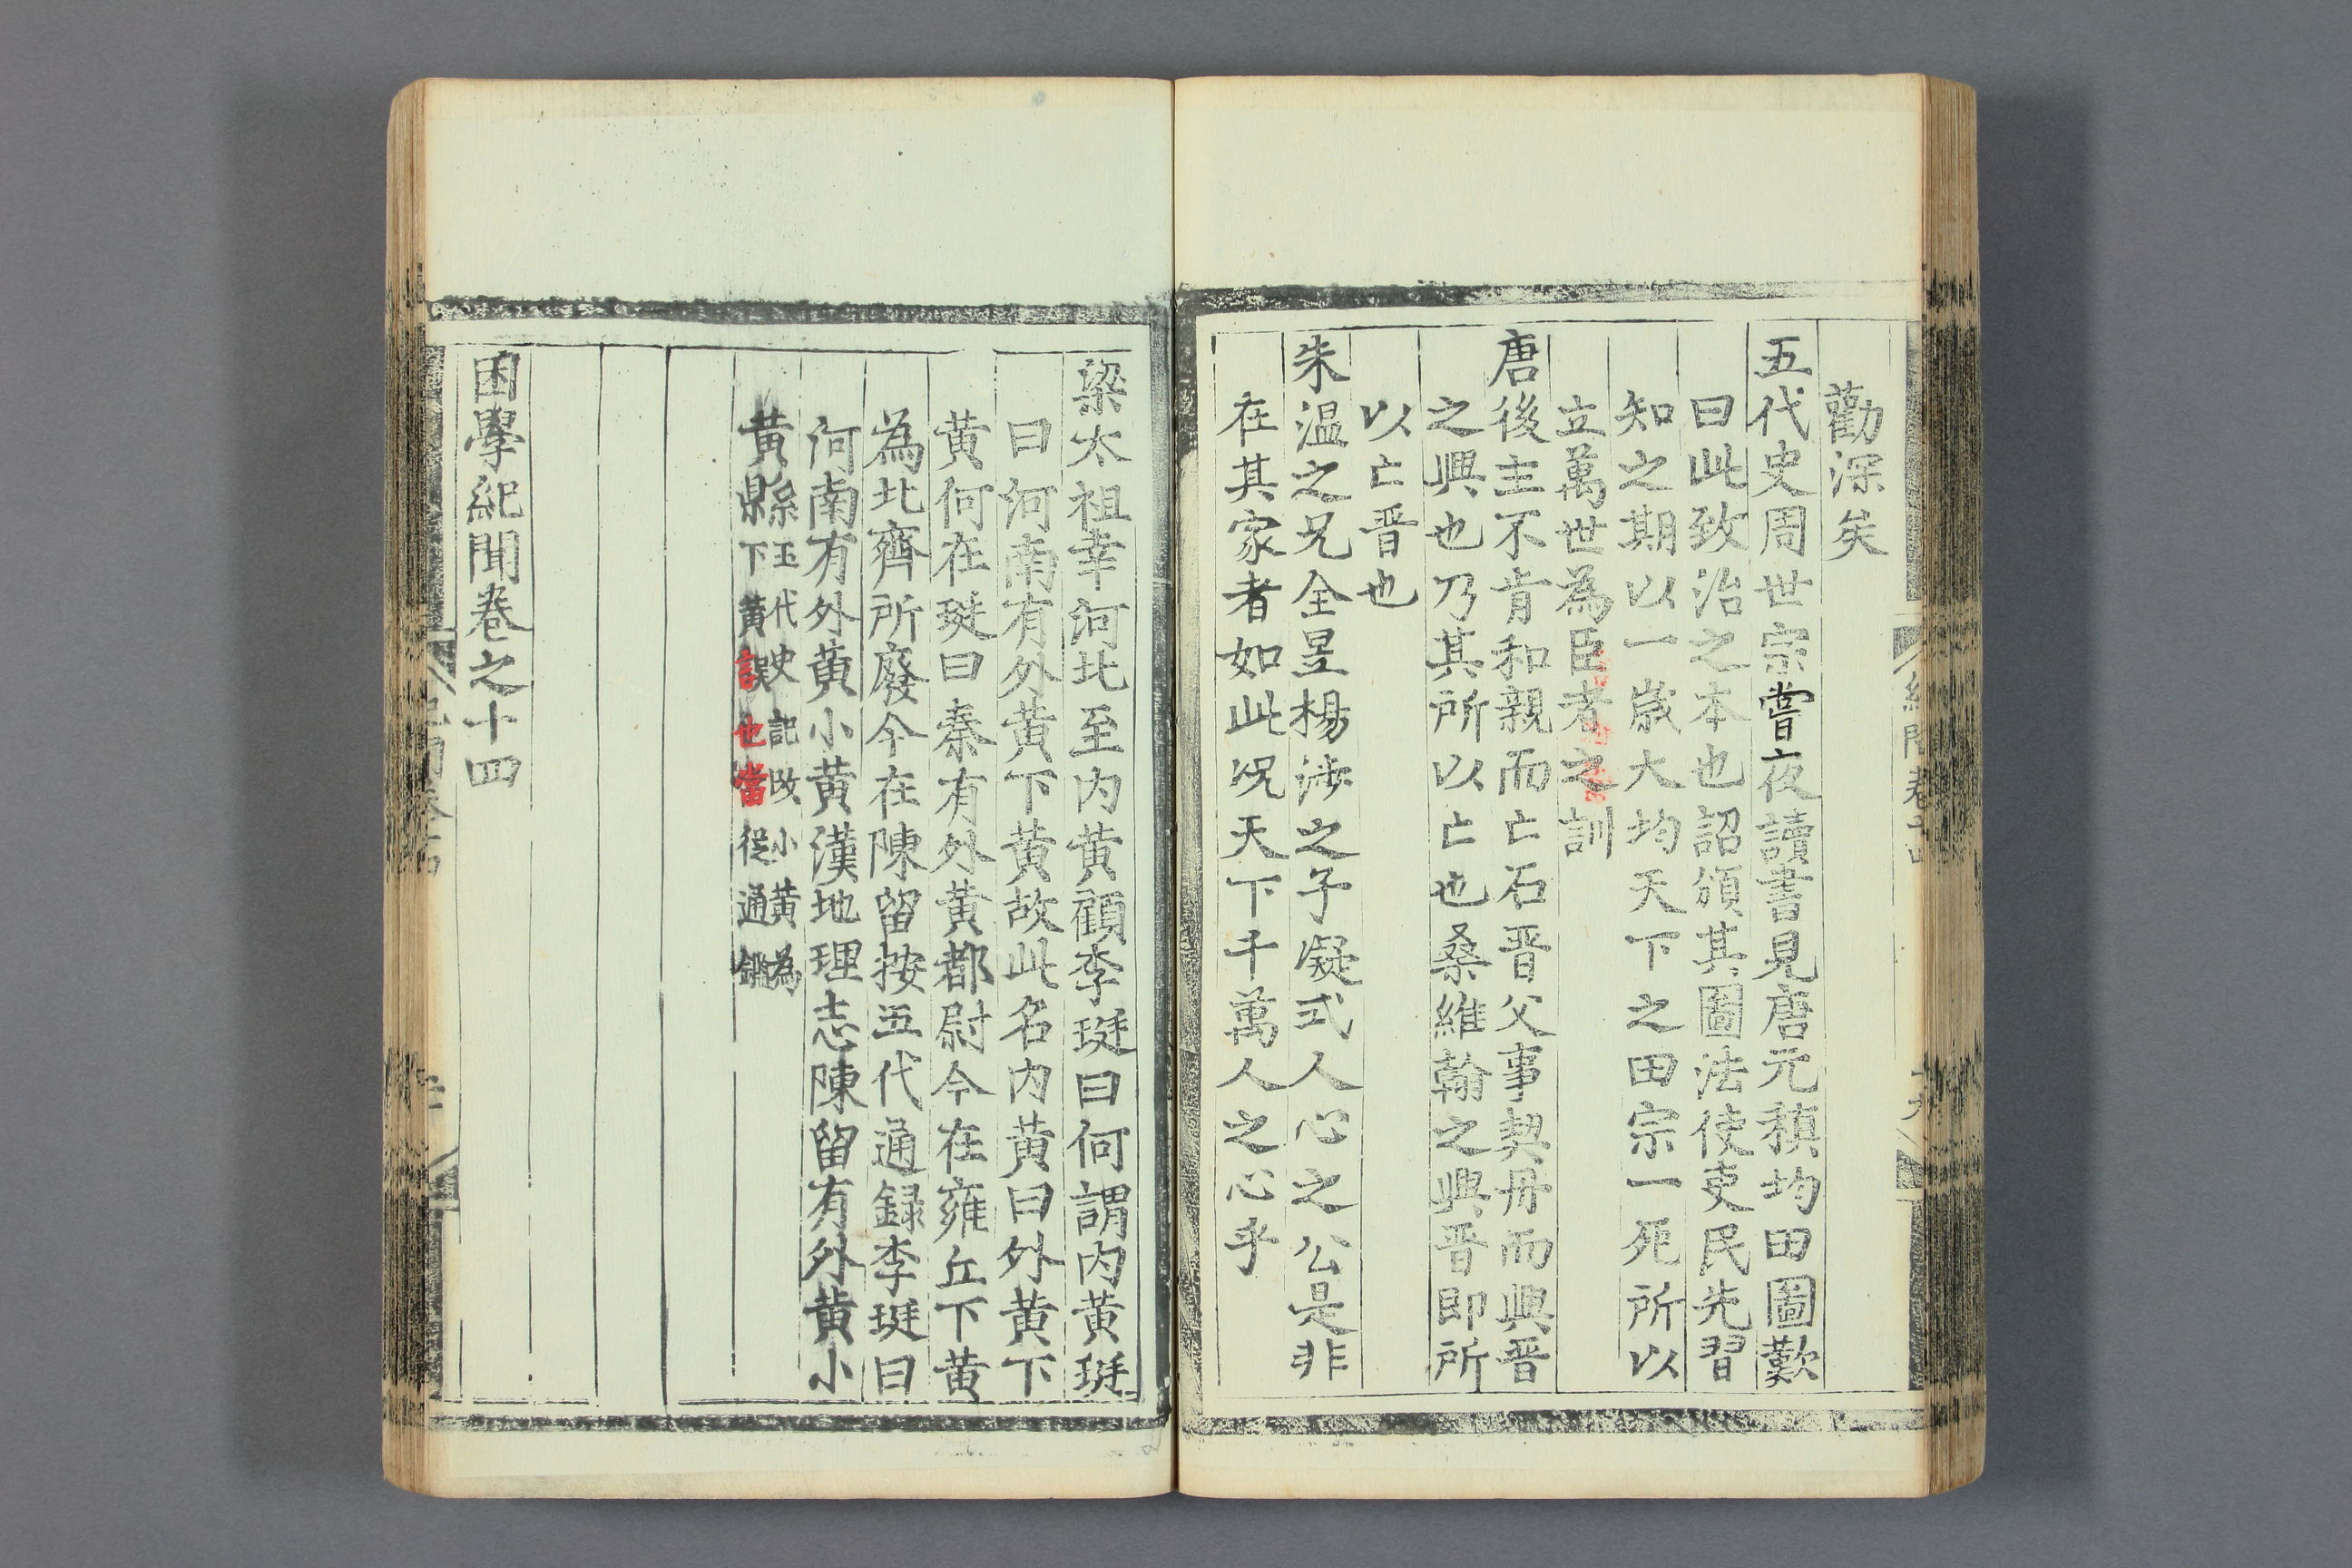 勸深矣
五代史周世宗嘗夜讀書見唐元稹均田圖歎
曰此致治之本也詔頒其圖法使吏民先習
知之期以一歲大均天下之田宗一死所以
立萬世為臣者之訓
唐後主不肯和親而亡石晋父事契丹而興晋
之興也乃其所以亡也桑維翰之興晋即所
以亡晋也
朱温之兄全昱楊渉之子凝式人心之公是非
在其家者如此况天下千萬人之心乎
梁太祖幸河北至内黄顧李珽曰何謂内黄珽
曰河南有外黄下黄故此名内黄曰外黄下
黄何在珽曰秦有外黄都尉今在雍丘下黄
為北齊所廢今在陳留按五代通録李珽曰
河南有外黄小黄漢地理志陳留有外黄小
黄縣五代史記改小黄為
縣下黄誤也當從通鑑
困學紀聞卷之十四